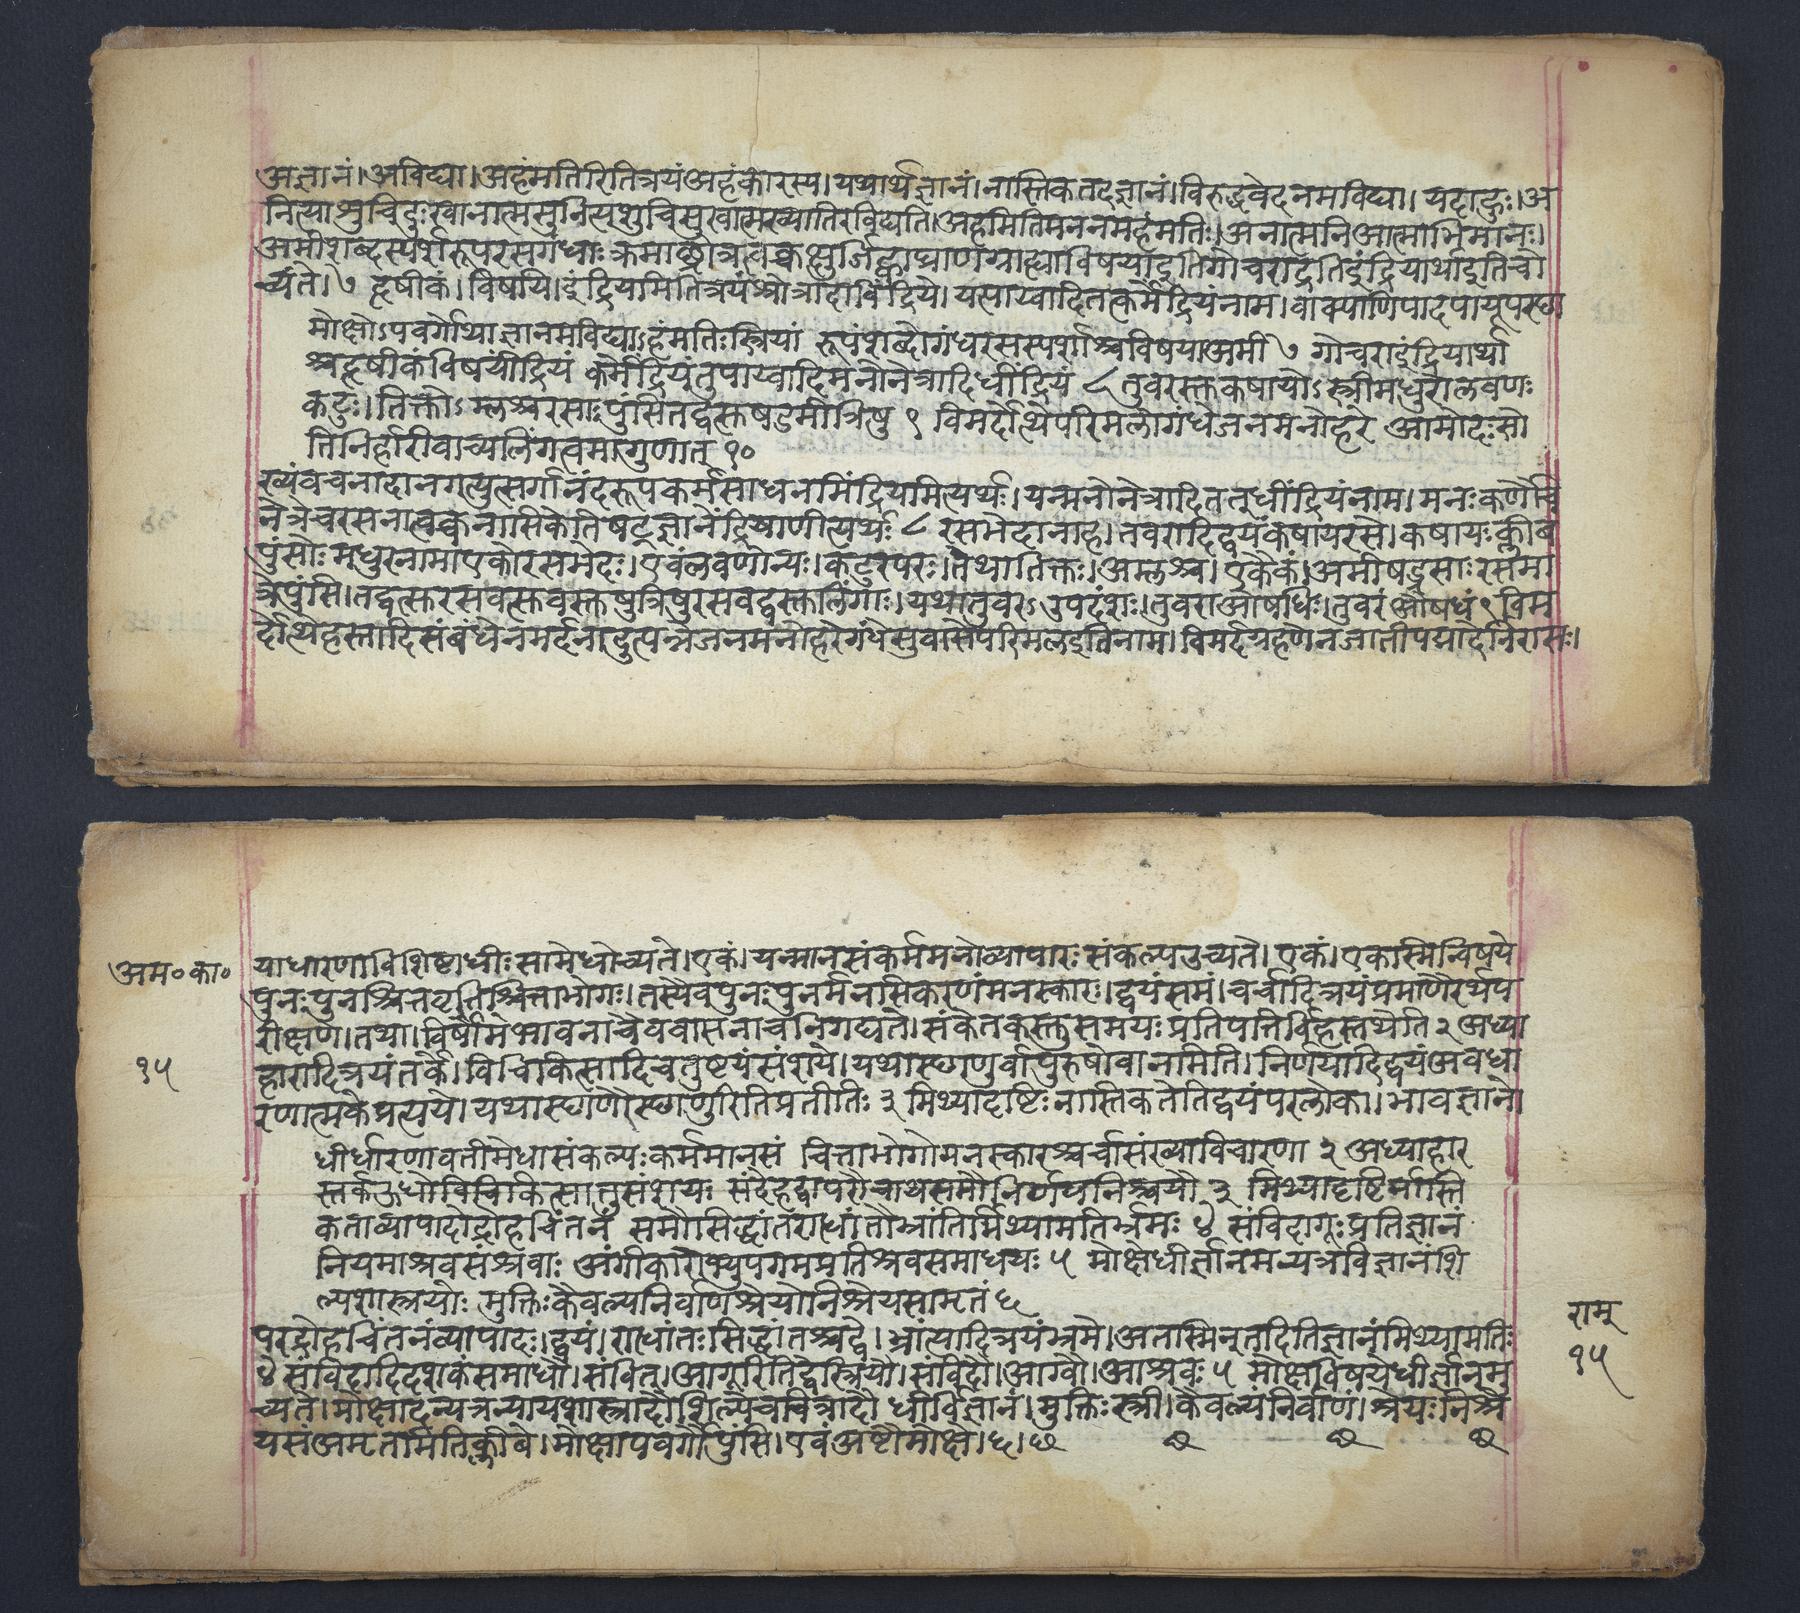 अज्ञानं।अविद्या।अहंमतिरितित्रयंअहंकारस्य।यथार्थज्ञानं।नास्तिकतदज्ञानं।विरुद्धवेदनमविद्या।यदाहुः।अ
नित्याशुचिदुःखानात्मसुनित्यशुचिसुखात्मख्यातिरविद्येति।अहमितिमननमहंमतिः।अनात्मनिआत्माभिमानः।
अमीशब्दस्पर्शरूपरसगंधाः क्रमाच्छ्रोत्रत्वक्चक्षुर्जिह्वाघ्राणग्राह्याविषयाइतिगोचराइतिइंद्रियार्थाइतिचो
च्यंते।७ हृषीकं।विषयि।इंद्रियमितित्रयंश्रोत्रादाविंद्रिये।यत्पाय्वादितत्कर्मेंद्रियंनाम।वाक्पाणिपादपायूपस्था
मोक्षोऽपवर्गोथाज्ञानमविद्याऽहंमतिःस्त्रियां रूपंशब्दोगंधरसस्पर्शाश्चविषयाअमी ७ गोचराइंद्रियार्था
श्चहृषीकंविषयींद्रियं कर्मेंद्रियंतुपाय्वादिमनोनेत्रादिधींद्रियं ८ तुवरस्तुकषायोऽस्त्रीमधुरोलवणः
कटुः।तिक्तोऽम्लश्चरसाःपुंसितद्वत्सुषडमीत्रिषु ९ विमर्दोत्थेपरिमलोगंधेजनमनोहरे आमोदःसो
तिनिर्हारीवाच्यलिंगत्वमागुणात् १०
ख्यंवचनादानगत्युत्सर्गानंदरूपकर्मसाधनमिंद्रियमित्यर्थः।यन्मनोनेत्रादितत्तुधींद्रियंनाम।मनःकर्णौचि
नेत्रंचरसनात्वक्चनासिकेतिषट्ज्ञानेंद्रियाणीत्यर्थः ८ रसभेदानाह।तवरादिद्वयंकषायरसे।कषायःक्लीब
पुंसोः मधुरनामाएकोरसभेदः।एवंलवणोन्यः।कटुरपरः।तथातिक्तः।अम्लश्च।एकैकं।अमीषड्रसाःरसमा
त्रेपुंसि।तद्वत्सुरसवत्सुवस्तुषुत्रिषुरसवद्वस्तुलिंगाः।यथातुवरऽउपदंशः।तुवराओषधिः।तुवरंऔषधं९विम
र्दोत्थेहस्तादिसंबंधेनमर्दनादुत्पन्नेजनमनोहरेगंधेसुवासेपरिमलइतिनाम।विमर्दग्रहणेनजातीपद्मादेर्निरासः।
अम॰का॰
१५
याधारणाविशिष्टाधीःसामेधोच्यते।एकं।यन्मानसंकर्ममनोव्यापारःसंकल्पउच्यते।एकं।एकस्मिन्विषये
पुनःपुनश्चित्तवृत्तिश्चित्ताभोगः।तस्यैवपुनःपुनर्मनसिकरणंमनस्कारः।द्वयंसमं।चर्चादित्रयंप्रमाणैरर्थप
रीक्षणे।तथा।विर्षोमभावनाचैववासनाचनिगद्यते।संकेतकृत्तुसमयःप्रतिपत्तिर्विहस्तथेति २ अध्या
हारादित्रयंतर्के।विचिकित्सादिचतुष्टयंसंशये।यथास्थाणुर्वापुरुषोवानमिति।निर्णयादिद्वयंअवधा
रणात्मकेप्रत्यये।यथास्थाणौस्थाणुरितिप्रतीतिः ३ मिथ्यादृष्टिःनास्तिकतेतिद्वयंपरलोका।भावज्ञाने।
धीर्धारणावतीमेधासंकल्पःकर्ममानसं चित्ताभोगोमनस्कारश्चर्चासंख्याविचारणा २ अध्याहार
स्तर्कऊहोविचिकित्सातुसंशयः संदेहद्वापरौचाथसमौनिर्णयनिश्चयौ ३ मिथ्यादृष्टिर्नास्ति
कताव्यापादोद्रोहचिंतनं समौसिद्धांतराधांतौभ्रांतिर्मिथ्यामतिर्भ्रमः ४ संविदागूःप्रतिज्ञानं
नियमाश्रवसंश्रवाः अंगीकाराभ्युपगमप्रतिश्रवसमाधयः ५ मोक्षेधीर्ज्ञानमन्यत्रविज्ञानंशि
ल्पशास्त्रयोः मुक्तिःकैवल्यनिर्वाणश्रेयोनिःश्रेयसामृतं६
परद्रोहचिंतनंव्यापादः।द्वयं।राधांतःसिद्धांतश्चद्वे।भ्रांत्यादित्रयंभ्रमे।अतस्मिन्तदितिज्ञानंमिथ्यामतिः
४ संविदादिदशकंसमाधौ।संवित्।आगूरितिद्वेस्त्रियौ।संविदौ।आग्वौ।आश्रवः ५ मोक्षविषयेधीर्ज्ञानमु
च्यते।मोक्षादन्यत्रन्यायशास्त्रादौशिल्पेचचित्रादौ धीर्विज्ञानं।मुक्तिःस्त्री।कैवल्यंनिर्वाणं।श्रेयःनिश्रे
यसंअमृतमितिक्लीबे।मोक्षापवर्गौपुंसि।एवंअष्टौमोक्षे।६।छ छ छ छ
रामृ
१५